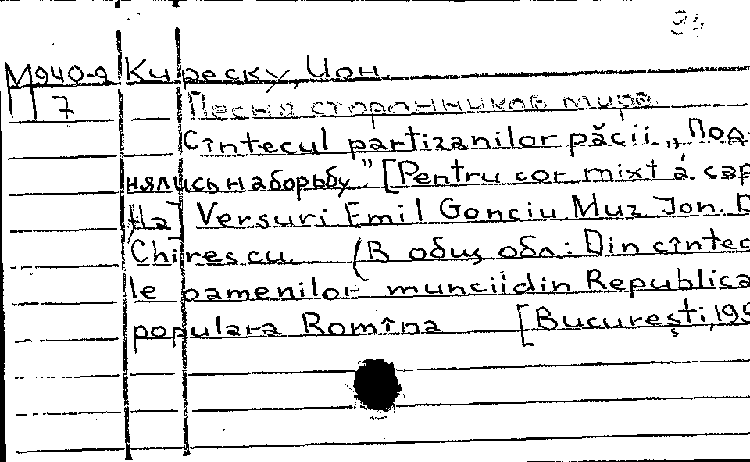 М940-9 Киреску, Ион.
П 7 Песня сторонников мира.
Cîntecul partizanilor păcii. „Под-
нялись на борьбу." [Pentru cor mixt a cap
Versuri Emil Gonciu Muz Jon. D
Chirescu. (В общ обл: Din cîntec
le oamenilor munciidin Republica
populara Romîna [Bucureşti, 195